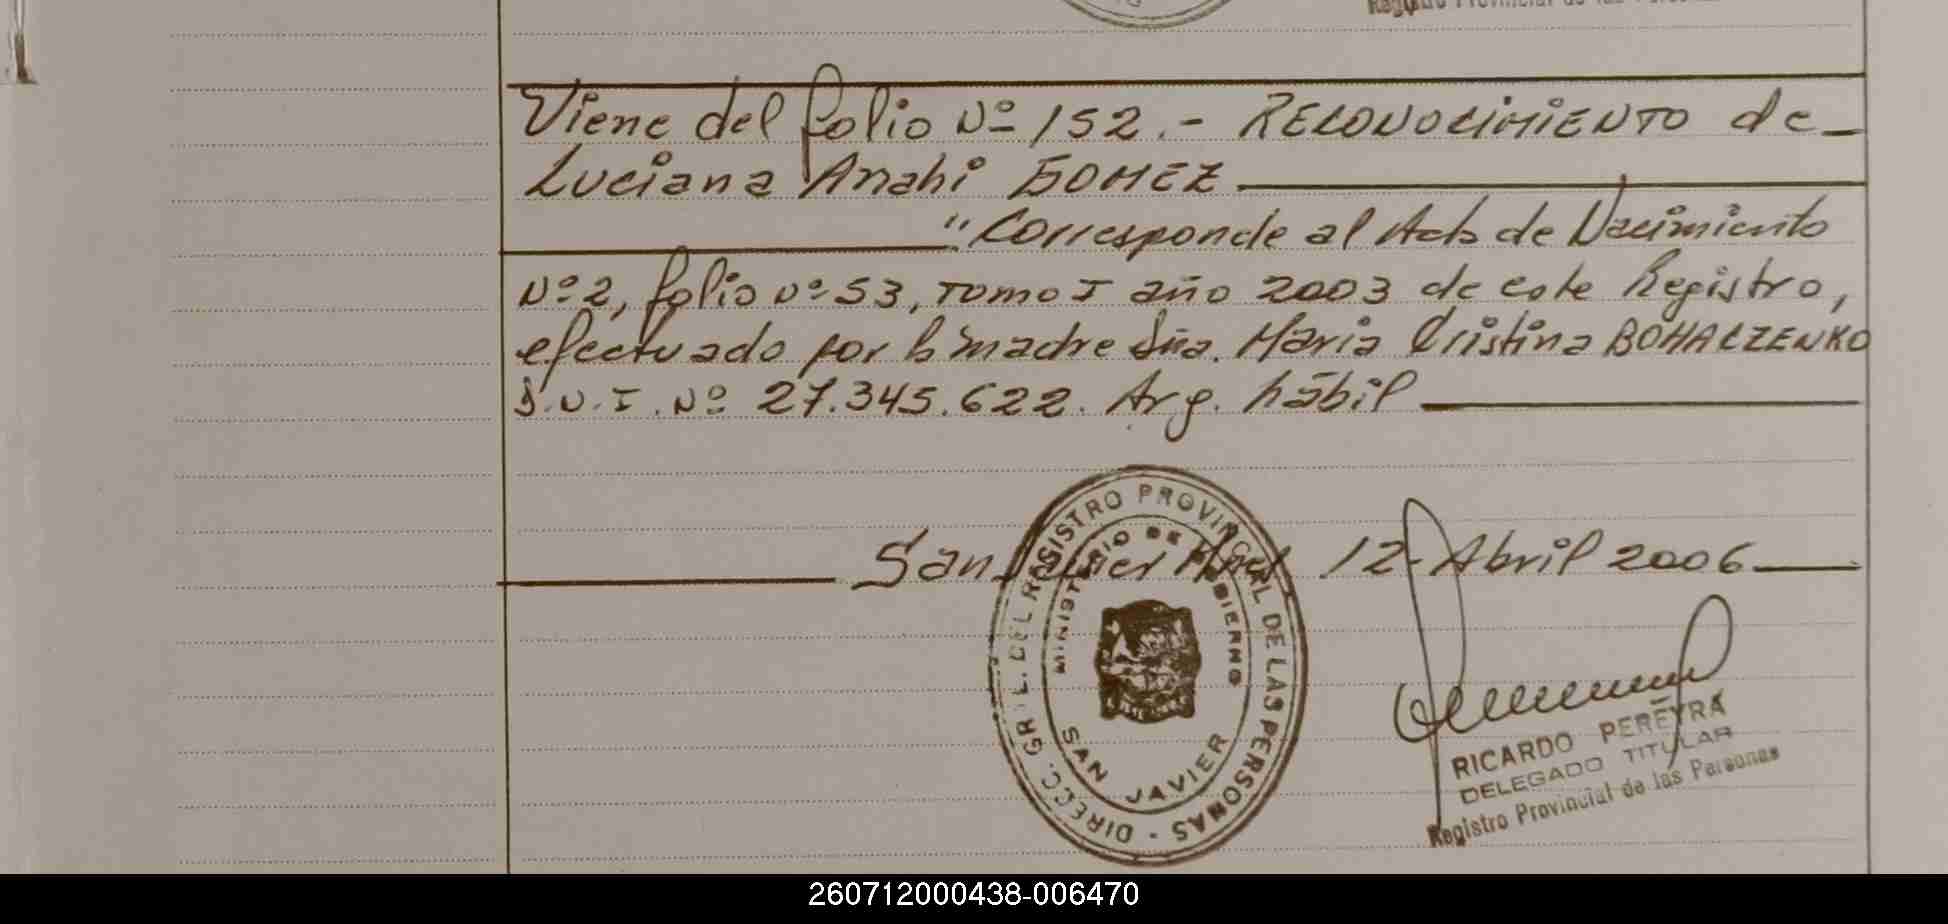 Registro Provincial de las Personas
Viene del folio Nº 152.- RECONOCIMIENTO de
Luciana Anahi GOMEZ
"Corresponde al Acta de Nacimiento
Nº 2, folio Nº 53, Tomo I año 2003 de este Registro,
efectuado por la madre Sra. Maria Cristina BOHACZENKO
D.N.I. Nº 27.345.622. Arg. hábil
San Javier Mnes 12 Abril 2006
DIRECC. GRAL. DEL REGISTRO PROVINCIAL DE LAS PERSONAS -
MINISTERIO DE GOBIERNO
SAN JAVIER
RICARDO PEREYRA
DELEGADO TITULAR
Registro Provincial de las Personas
260712000438-006470